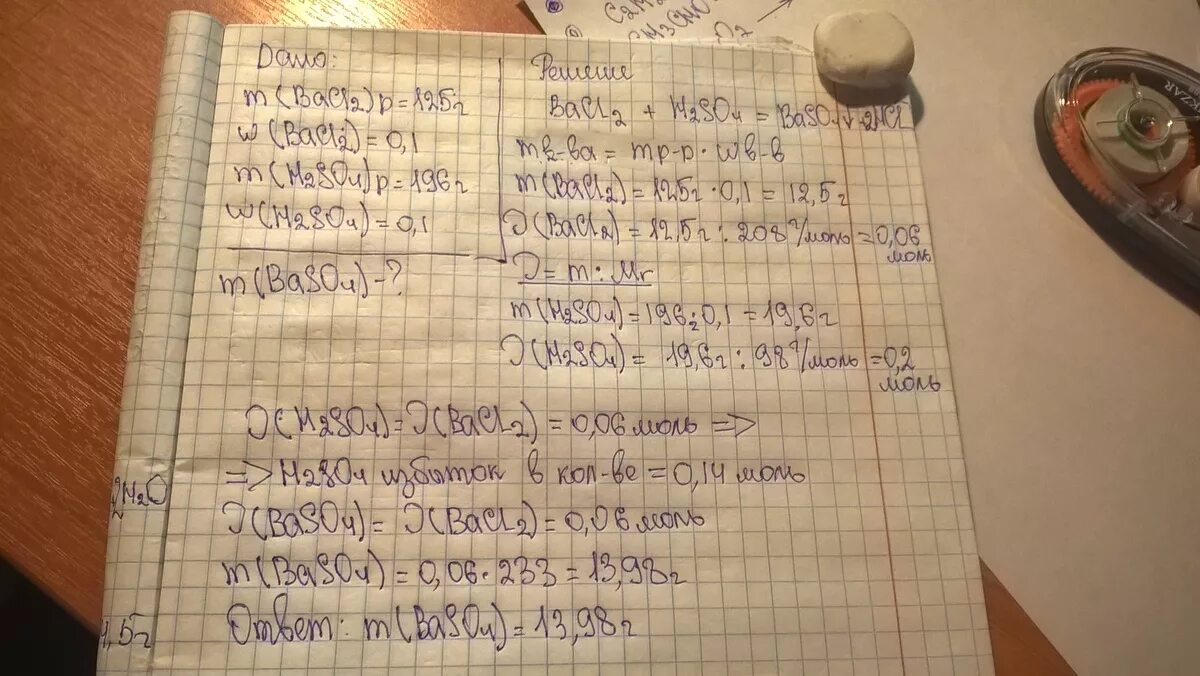 C2H2
CH3CHO
O2
Дано:
m(BaCl2)р=125г
w(BaCl2)=0,1
m(H2SO4)р=196г
w(H2SO4)=0,1
m(BaSO4)-?
Решение
BaCl2 + H2SO4 = BaSO4↓+2HCl
mв-ва = mр-р·wв-в
m(BaCl2)=125г·0,1=12,5г
ν(BaCl2)=12,5г:208г/моль=0,06
моль
ν=m:Mr
m(H2SO4)=196г·0,1=19,6г
ν(H2SO4)=19,6г:98г/моль=0,2
моль
ν(H2SO4)=ν(BaCl2)=0,06моль =>
=> H2SO4 избыток в кол-ве =0,14моль
ν(BaSO4)=ν(BaCl2)=0,06моль
m(BaSO4)=0,06·233=13,98г
Ответ: m(BaSO4)=13,98г
2H2O
,5г